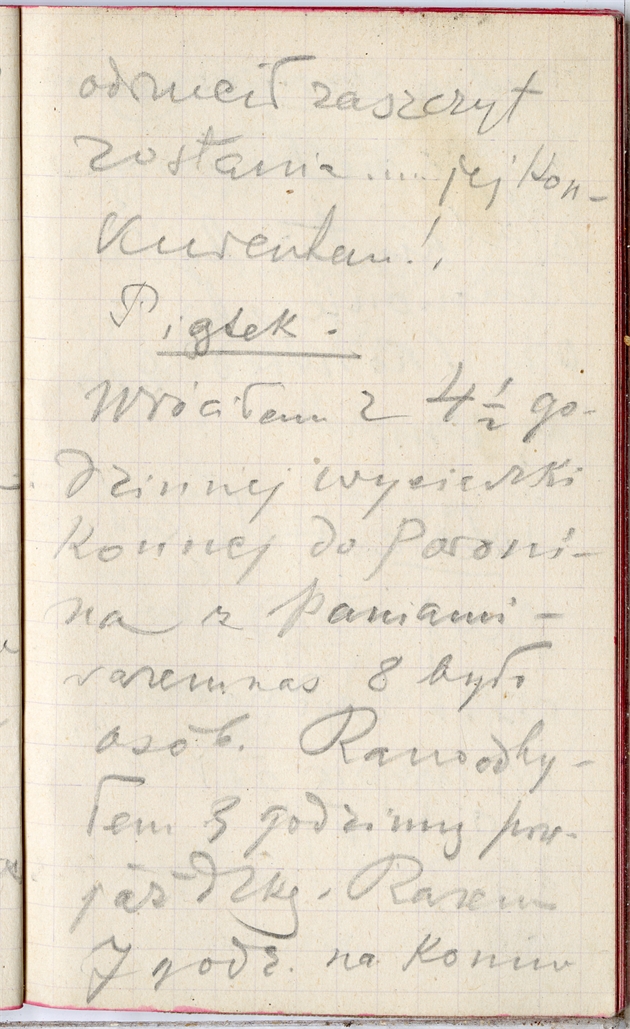 odrzucił zaszczyt
zostania .... jej kon-
kurentem!.
Piątek.
Wróciłem z 4 1/2 go-
dzinnej wycieczki
konnej do Poroni-
na z paniami -
razem nas 8 było
osób. Rano odby-
łem 3 godzinną prze-
jażdżkę. Razem
7 godz. na koniu